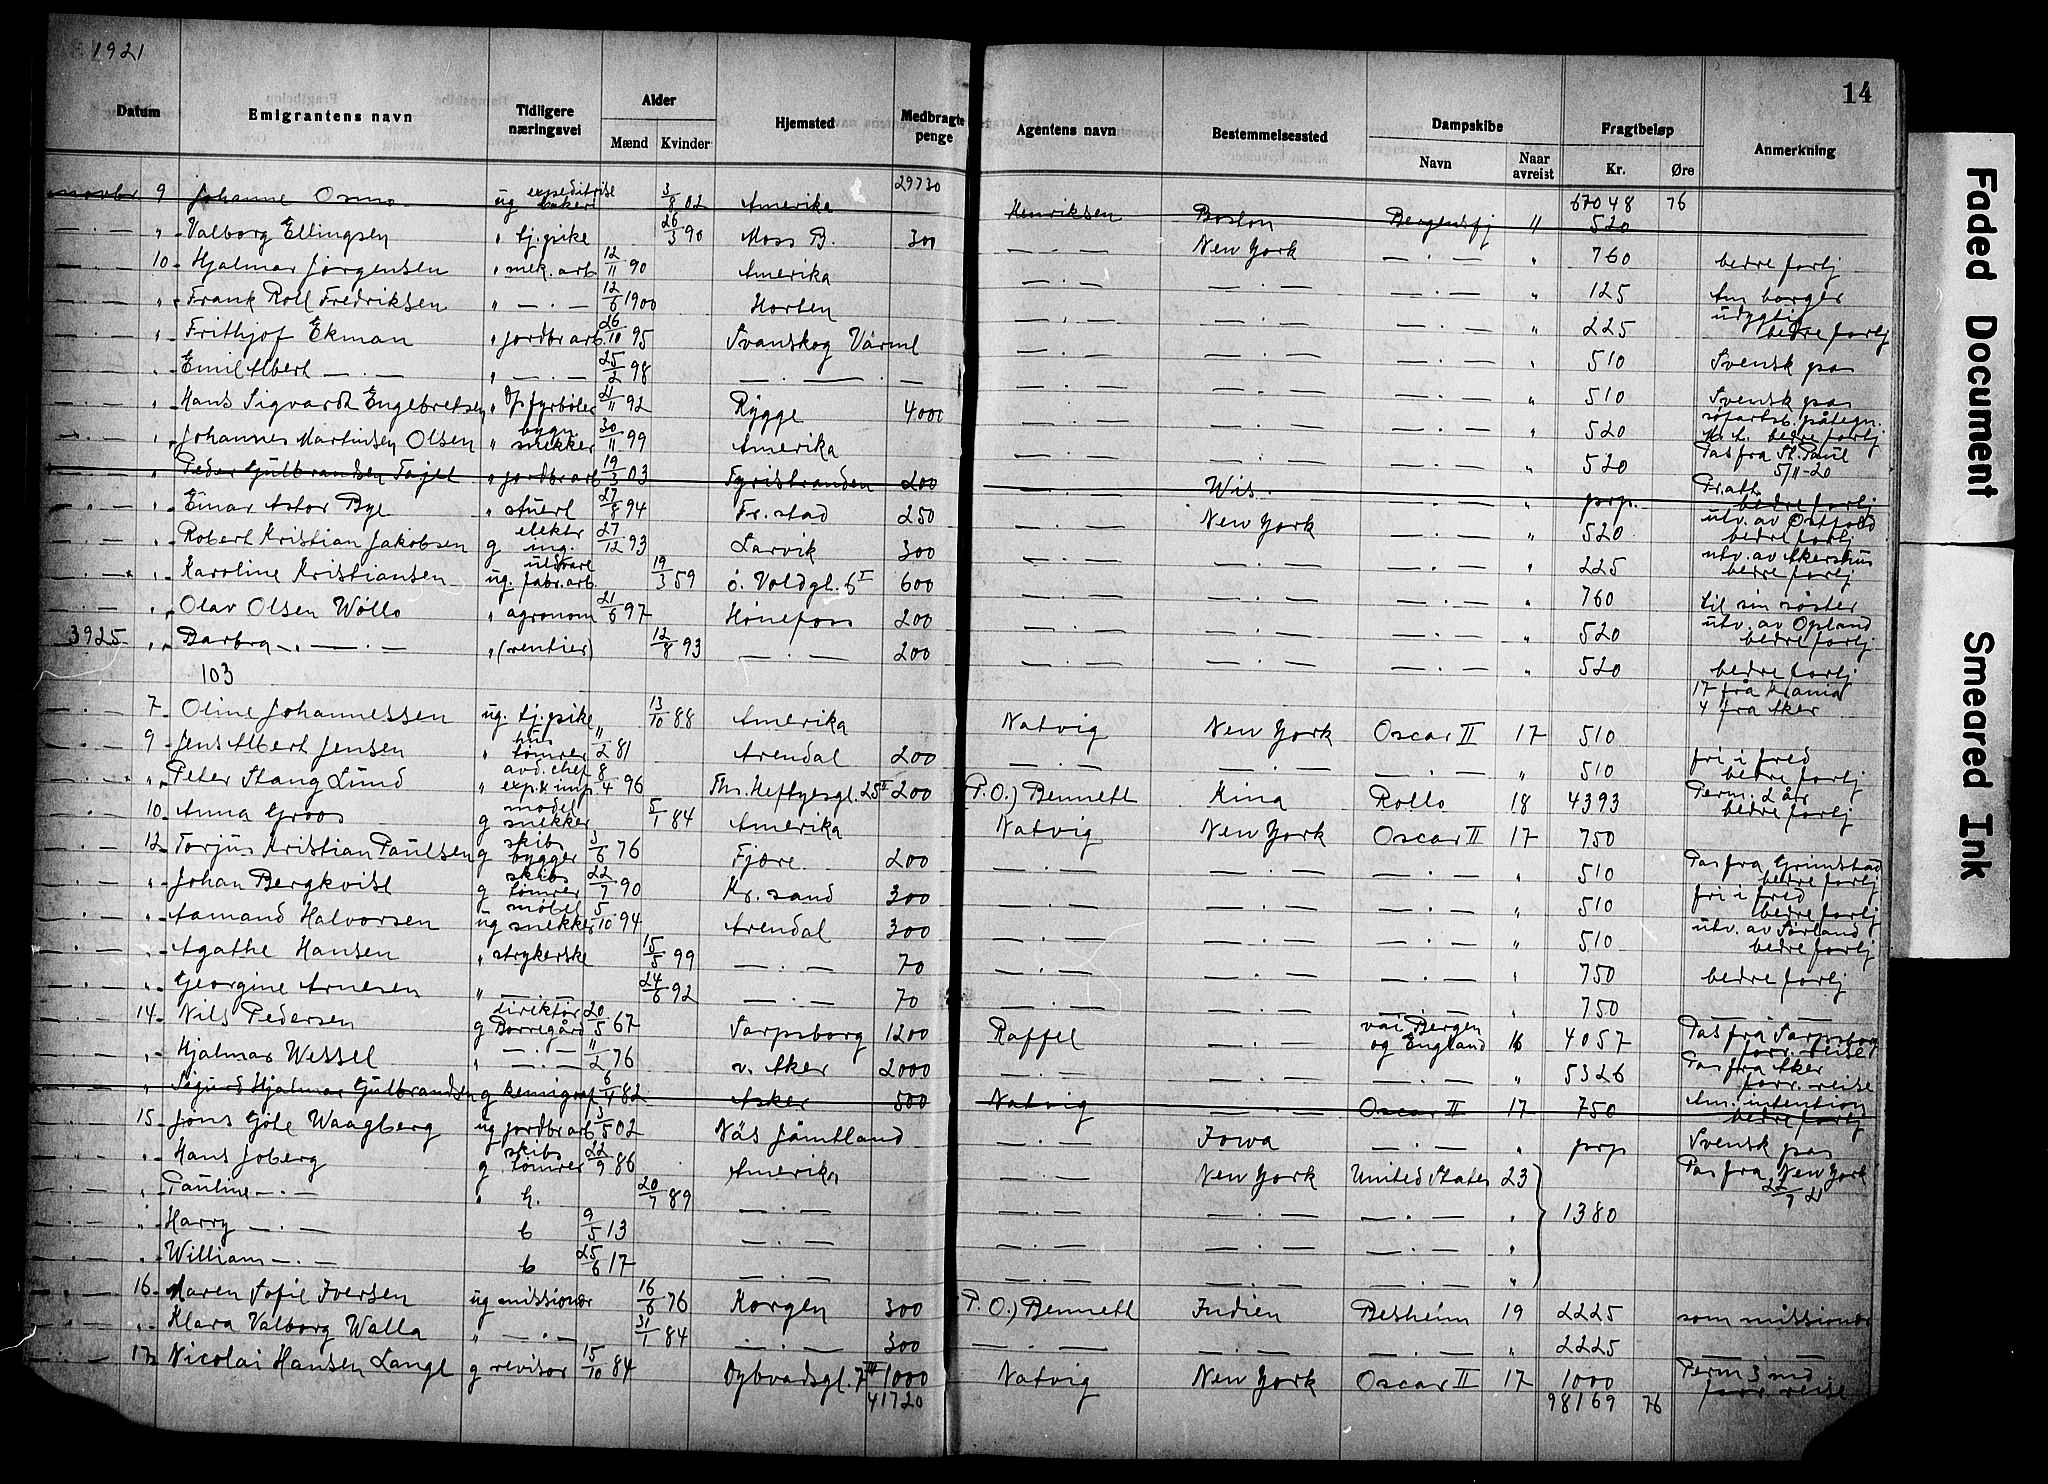 1921
14
Datum | Emigrantens navn | Tidligere næringsvei | Alder Mænd Kvinder | Hjemsted | Medbragte penge | Agentens navn | Bestemmelsessted | Dampskibe Navn Naar avreist | Fragtbeløp Kr. Øre | Anmerkning
29730 67048 76
novbr 9 Johanne Osmo ug expeditrise bakeri 3/8 02 Amerika Henriksen Boston Bergensfj " 520
— · — " Valborg Ellingsen " tj.pike 26/3 90 Moss B. 300 — · — New York — · — " 760 bedre forlj
— · — 10 Hjalmar Jørgensen " mek. arb. 12/11 90 Amerika — · — — · — — · — " 125 Am borger
— · — " Frank Roll Fredriksen " — · — 12/6 1900 Horten — · — — · — — · — " 225 udygtig bedre forlj
— · — " Frithjof Ekman " jordbr arb. 26/10 95 Svanskog Värml — · — — · — — · — " 510 Svensk pas
— · — " Emil Albert — · — " — · — 25/2 98 — · — · — — · — — · — — · — " 510 Svensk pas
— · — " Hans Sigvardt Engebretsen fyrbøter 21/11 92 Rygge 4000 — · — — · — — · — " 520 søfartsb. påtegn. bedre forlj
— · — " Johannes Martinsen Olsen " bygn. snekker 30/11 99 Amerika — · — — · — — · — " 520 Pas fra St. Paul 5/11-20
— · — " Peder Gulbrandsen " jordbr arb 19/3 03 Tyristranden 200 — · — Wis. — · — " prp. bedre forlj
— · — " Einar Astor Bye " stuert 27/8 94 Fr. stad 250 — · — New York — · — " 520 utv. av Østfold bedre forlj
— · — " Robert Kristian Jakobsen g elektr ing. 27/12 93 Larvik 300 — · — — · — — · — " 225 utv. av Akershus bedre forlj
— · — " Karoline Kristiansen ug. fabr. arb. 19/3 59 ö. Voldgt. 6 I 600 — · — — · — — · — " 760 til sin søster
— · — " Olav Olsen Wøllo " agronom 21/6 97 Hønefoss 200 — · — — · — — · — " 520 utv. av Opland bedre forlj
3925 " Barbra — · — " (rentier) 12/8 93 — · — 200 — · — — · — — · — " 520 bedre forlj
103 17 fra Krania
4 fra Aker
— · — 7 Oline Johannessen ug. tj.pike 13/10 88 Amerika Natvig New York Oscar II 17 510
— · — 9 Jens Albert Jensen " hus tømrer 11/2 81 Arendal 200 — · — — · — — · — " 510 fri i fred bedre forlj
— · — " Peter Stang Lund " avd. chef exp. & imp. 8/4 96 Th. Heftyesgt. 25 I 200 P. O.) Bennett Kina Rollo 18 4393 Perm. 2 år bedre forlj
— · — 10 Anna Groos g model snekker 5/1 84 Amerika Natvig New York Oscar II 17 750
— · — 12 Torjus Kristian Paulsen g skibs bygger 3/6 76 Fjære 200 — · — — · — — · — " 510 Pas fra Grimstad bedre forlj
— · — " Johan Bergkvist g skibs tømrer 22/7 90 Kr. sand 300 — · — — · — — · — " 510 fri i fred bedre forlj
— · — " Aamand Halvorsen ug møbel snekker 5/10 94 Arendal 300 — · — — · — — · — " 510 utv. av Sørland bedre forlj
— · — " Agathe Hansen " strykerske 15/5 99 — · — 70 — · — — · — — · — " 750 bedre forlj
— · — " Georgine Arnesen " — · — 24/6 92 — · — 70 — · — — · — — · — " 750 — · —
— · — 14 Nils Pedersen g direktør Borregård 20/5 67 Sarpsborg 1200 Raffel — · — vai Bergen og England 16 4057 Pas fra Sarpsborg forr. reise
— · — " Hjalmar Wessel " — · — 11/2 76 v. Aker 2000 — · — — · — — · — " 5326 Pas fra Aker forr. reise
— · — " Sigurd Hjalmar Gulbrandsen g kemigraf 6/4 82 Asker 500 Natvig — · — Oscar II 17 750 Am. intention bedre forlj
— · — 15 Jöns Göte Waagberg ug jordbr arb 3/5 02 Näs Jämtland — · — Iowa — · — " prp Svensk pas
— · — " Hans Joberg g skibs tømrer 22/9 86 Amerika — · — New York United States 23 Pas fra New York 22/9 21
— · — " Pauline — · — " h. 20/7 89 — · — — · — — · — — · — " 1380
— · — " Harry — · — b 9/5 13 — · — — · — — · — — · — "
— · — " William — · — b 25/6 17 — · — — · — — · — — · — "
— · — 16 Maren Sofie Iversen ug missionær 16/6 76 Korgen 300 P. O.) Bennett Indien Besheim 19 2225 som missionær
— · — " Klara Valborg Walla " — · — 31/1 84 — · — 300 — · — — · — — · — " 2225 — · —
— · — 17 Nicolai Hansen Lange g revisor 15/10 84 Dybvadsgt. 7 III 1000 Natvig New York Oscar II 17 1000 Perm 3 md forr. reise
41720 98169 76
Faded Document
Smeared Ink